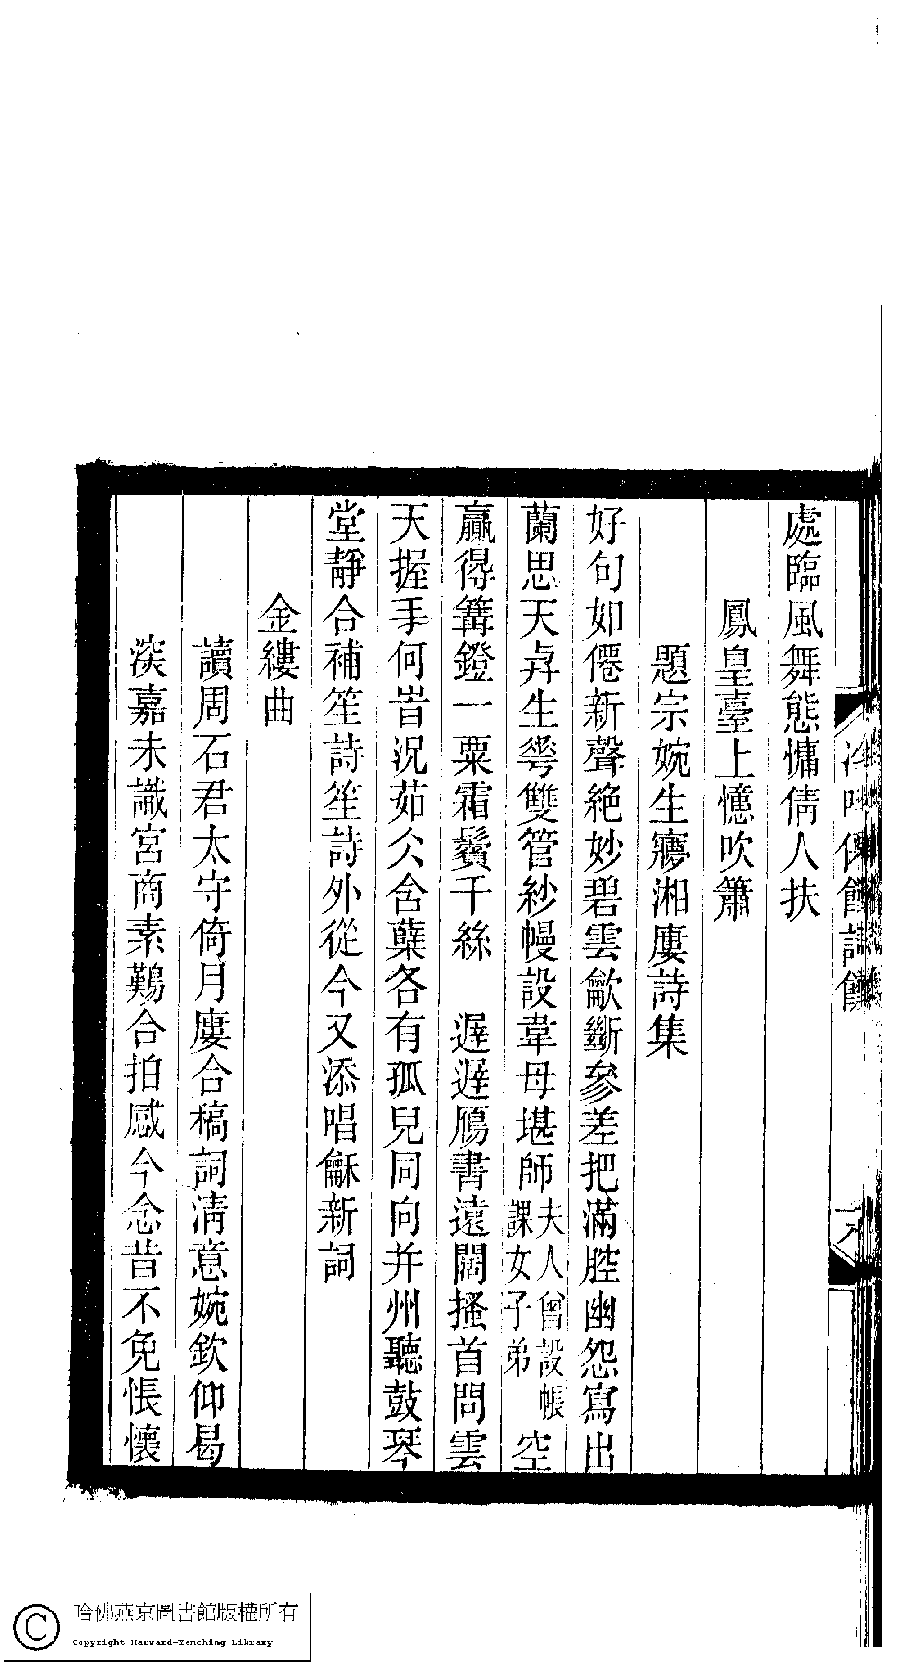 處臨風舞態慵倩人扶
鳳皇臺上憶吹簫
題宗婉生㝱湘廔詩集
好句如僊新聲絕妙碧雲歈斷參差把滿腔幽怨寫出
蘭思天弆生㠭雙管紗幔設韋母堪師夫人曾設帳課女子弟空
贏得篝鐙一粟霜鬢千絲　遲遲鴈書遠闊搔首問雲
天握手何旹況茹仌含蘗各有孤兒同向并州聽鼓琴
堂靜合補笙詩笙詩外從今又添唱龢新詞
金縷曲
讀周石君太守倚月廔合稿詞清意婉欽仰曷
淡嘉未識宮商素鷬合拍感今念昔不免悵懷
哈佛燕京圖書館版權所有
Copyright Harvard-Yenching Library